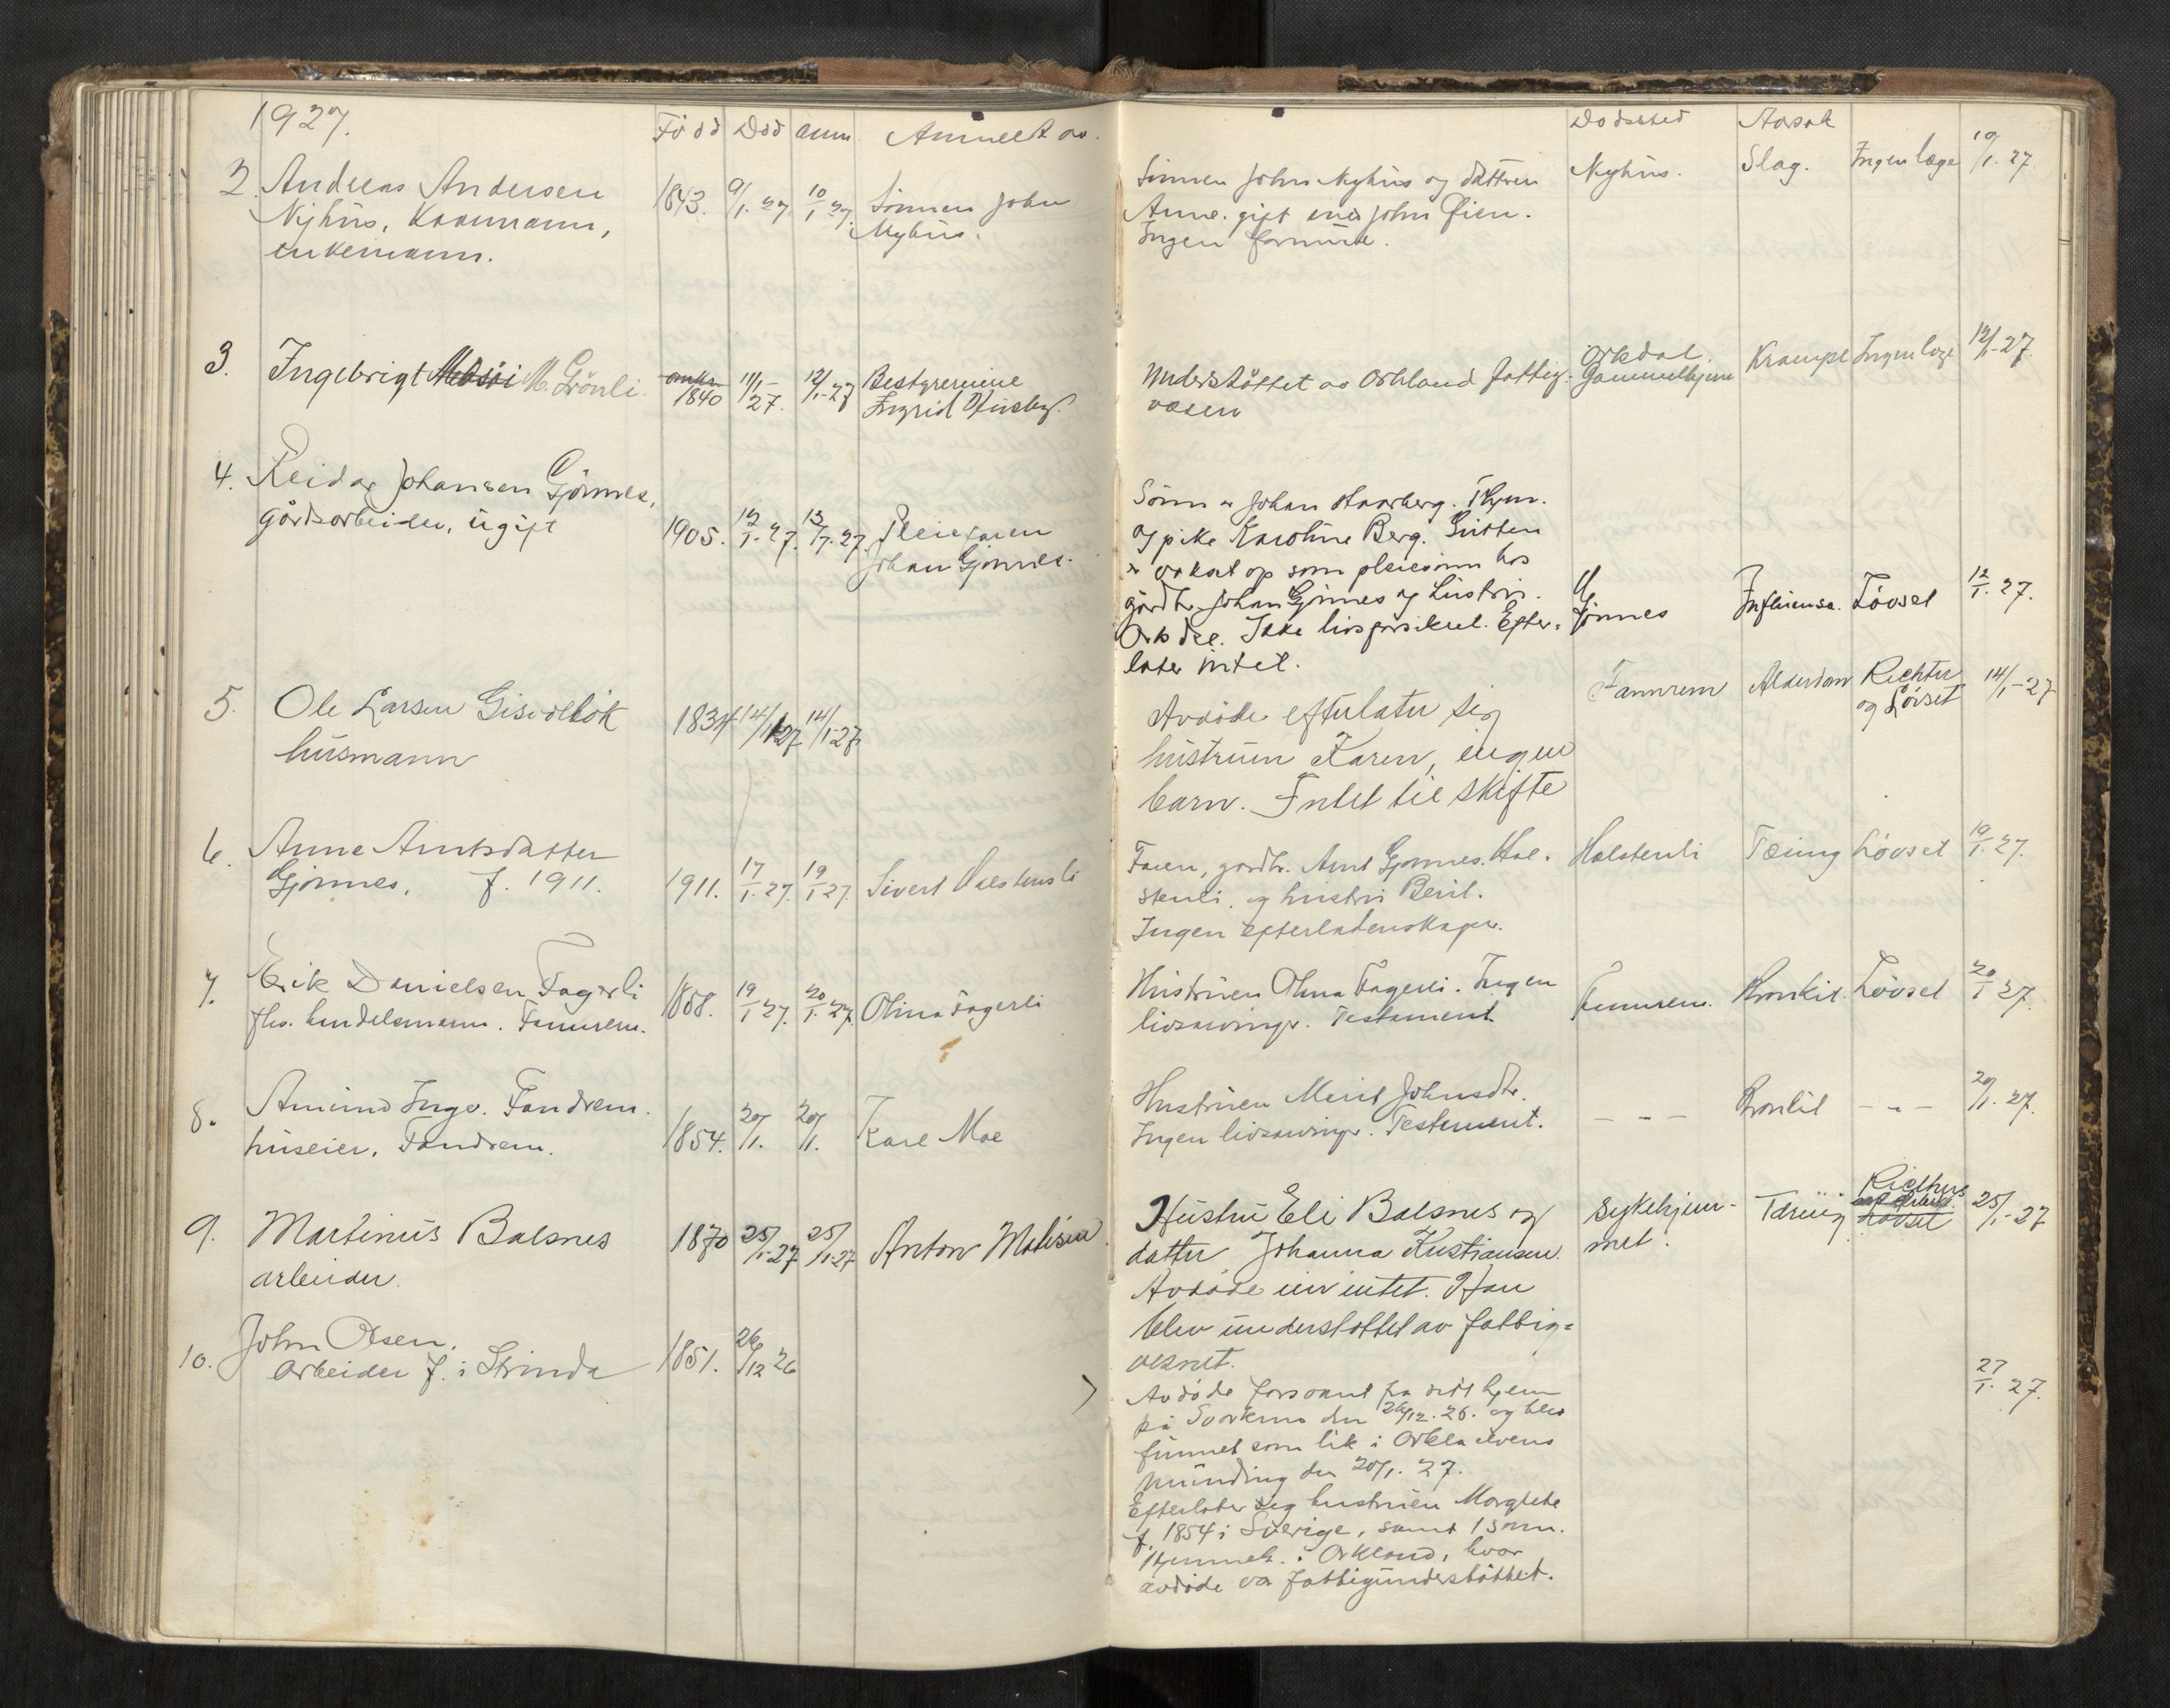 1927.
Född Död anm. Anmeldt av.
Dödssted Aarsak
2. Andreas Andersen
Nyhus, Kaarmann,
enkemann.
1843. 9/1. 27. 10/1 27. Sönnen John
Nyhus.
Sönnen John Nyhus og dattren
Anne. gift med John Öien.
Ingen formue.
Nyhus. Slag. Ingen læge 10/1. 27.
3. Ingebrigt M. Grönli.
1840 11/1-27. 12/1-27 Bestyrerinne
Ingrid Husby.
Understöttet av Orkland fattig-
væsen
Orkdal.
Gammelhjem Krampe Ingen læge 12/1-27.
4. Reidar Johansen Gjönnes,
gårdsarbeider, ugift
1905. 12/1. 27. 13/1. 27. Pleiefaren
Johan Gjönnes.
Sönn av Johan Haarberg. Thjem.
og pike Karoline Berg. Gutten
er vokset op som pleiesönn hos
gårdbr. Johan Gjönnes og hustru.
Orkdal. Ikke livsforsikret. Efter-
later intet.
Gjönnes Influensa. Lövset 12/1. 27.
5. Ole Larsen Gisvolbök
husmann
1834 14/1 27 14/1-27
Avdöde efterlater sig
hustruen Karen, ingen
barn. Intet til skifte
Fannrem Alderdom Richter
og Lövset 14/1-27
6. Anne Arntsdatter
Gjönnes. f. 1911.
1911. 17/1. 27. 19/1 27. Sivert Halstenli
Faren, gardbr. Arnt Gjönnes. Hal-
stenli, og hustru Berit.
Ingen efterladenskaper.
Halstenli Tæring Lövset 19/1. 27.
7. Erik Danielsen Fagerli
fhv. handelsmann. Fannrem.
1858. 19/1 27. 20/1. 27. Olina Fagerli
Hustruen Olina Fagerli. Ingen
livsarvinger. Testament
Fannrem. Bronkit. Lövset 20/1 27.
8. Amund Ingv. Fandrem.
huseier, Fandrem.
1854. 20/1. 20/1. Karl Moe
Hustruen Merit Johnsdtr.
Ingen livsarvinger. Testament.
- - - Bronkit - - - 20/1. 27.
9. Martinus Balsnes
arbeider.
1870 25/1-27 25/1-27 Anton Malisen
Hustru Eli Balsnes og
datter Johanna Kristiansen.
Avdöde eier intet. Han
blev understöttet av fattig=
vesnet.
Sykehjem-
met. Tæring Richter
Lövset 25/1-27
10. John Olsen.
Arbeider f. i Strinda
1851. 26/12 26
Avdöde forsvant fra sitt hjem
på Svorkmo den 26/12. 26. og blev
funnet som lik i Orkla elvens
munding den 20/1. 27.
Efterlater sig hustruen Margrete
f. 1854 i Sverige, samt 1 sönn.
Hjemmeh. i Orkland, hvor
avdöde var fattigunderstöttet.
27/1. 27.